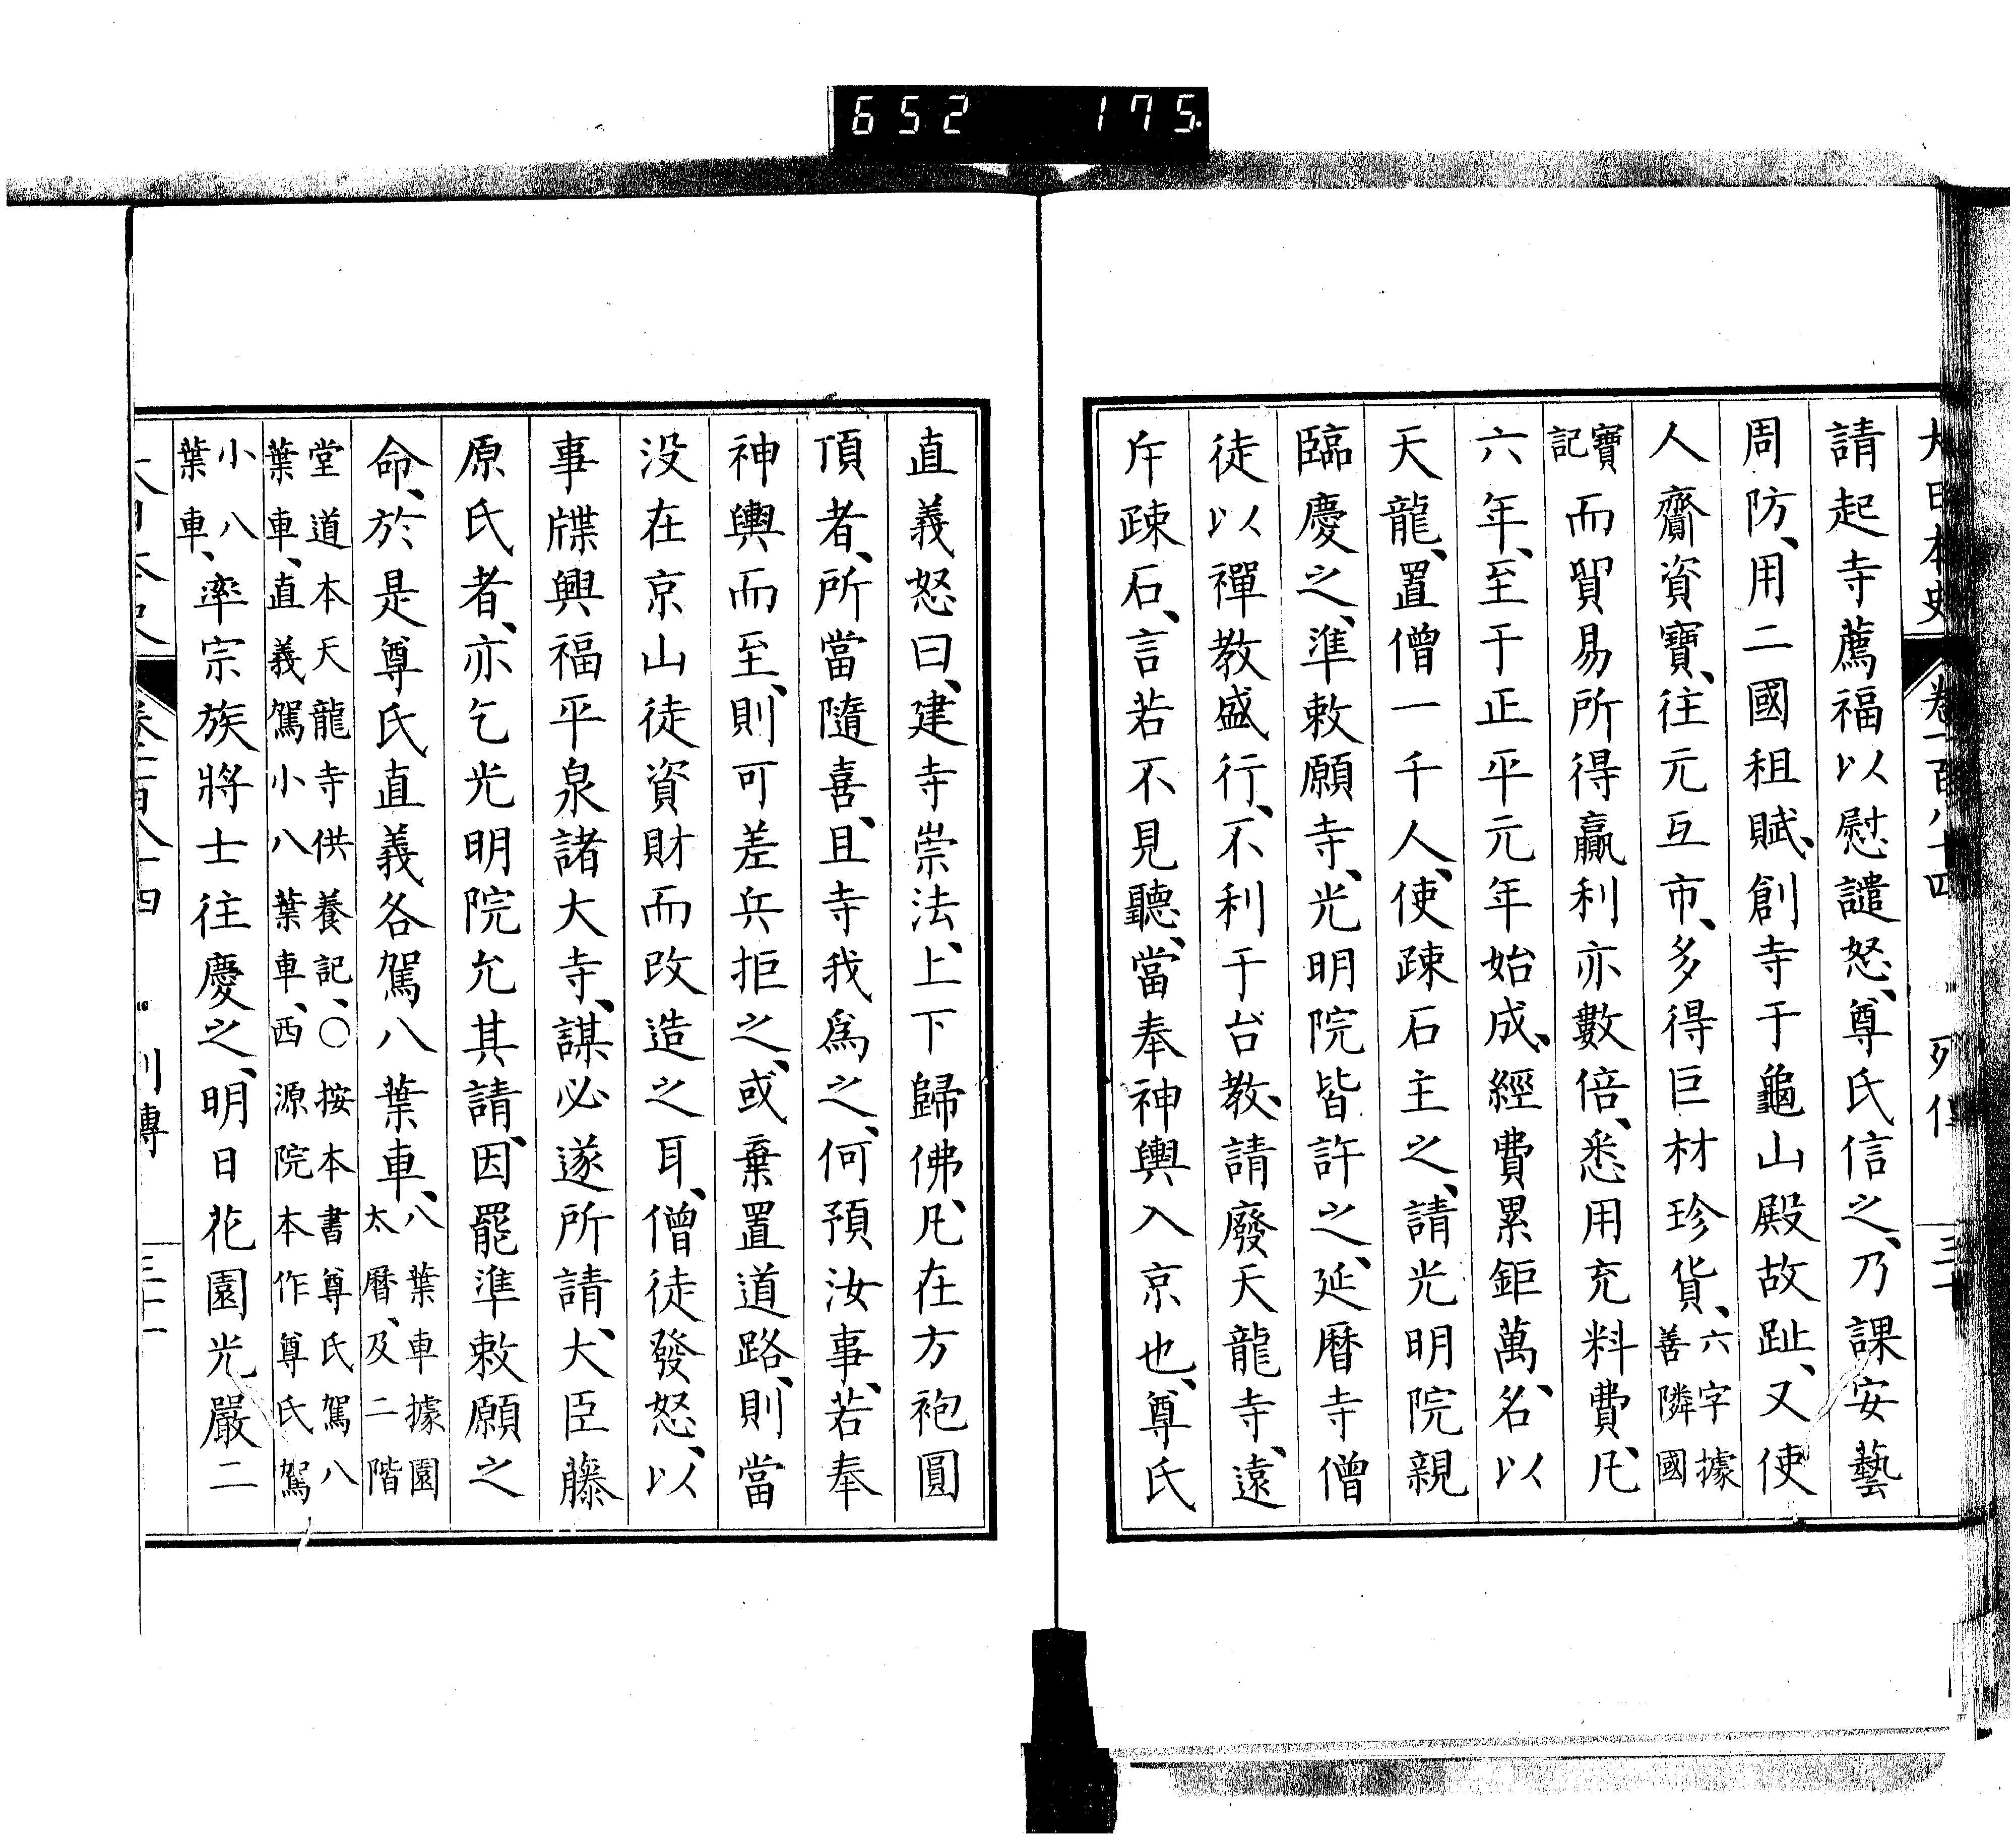 652 175.
大日本史 卷一百八十四 列傳 三十
請起寺薦福以慰譴怒、尊氏信之、乃課安藝
周防、用二國租賦、創寺于龜山殿故趾、又使
人齎資寶、往元互市、多得巨材珍貨、六字據善隣國
寶記而貿易所得贏利亦數倍、悉用充料費、凡
六年、至于正平元年始成、經費累鉅萬、名以
天龍、置僧一千人、使疎石主之、請光明院親
臨慶之、準敕願寺、光明院皆許之、延曆寺僧
徒以禪教盛行、不利于台教、請廢天龍寺、遠
斥疎石、言若不見聽、當奉神輿入京也、尊氏
直義怒曰、建寺崇法、上下歸佛、凡在方袍圓
頂者、所當隨喜、且寺我爲之、何預汝事、若奉
神輿而至、則可差兵拒之、或棄置道路、則當
沒在京山徒資財而改造之耳、僧徒發怒、以
事牒興福平泉諸大寺、謀必遂所請、大臣藤
原氏者、亦乞光明院允其請、因罷準敕願之
命、於是尊氏直義各駕八葉車、八葉車據園太曆、及二階
堂道本天龍寺供養記、○按本書尊氏駕八葉車、直義駕小八葉車、西源院本作尊氏駕
小八葉車、率宗族將士往慶之、明日花園光嚴二
大日本史 卷一百八十四 列傳 三十一